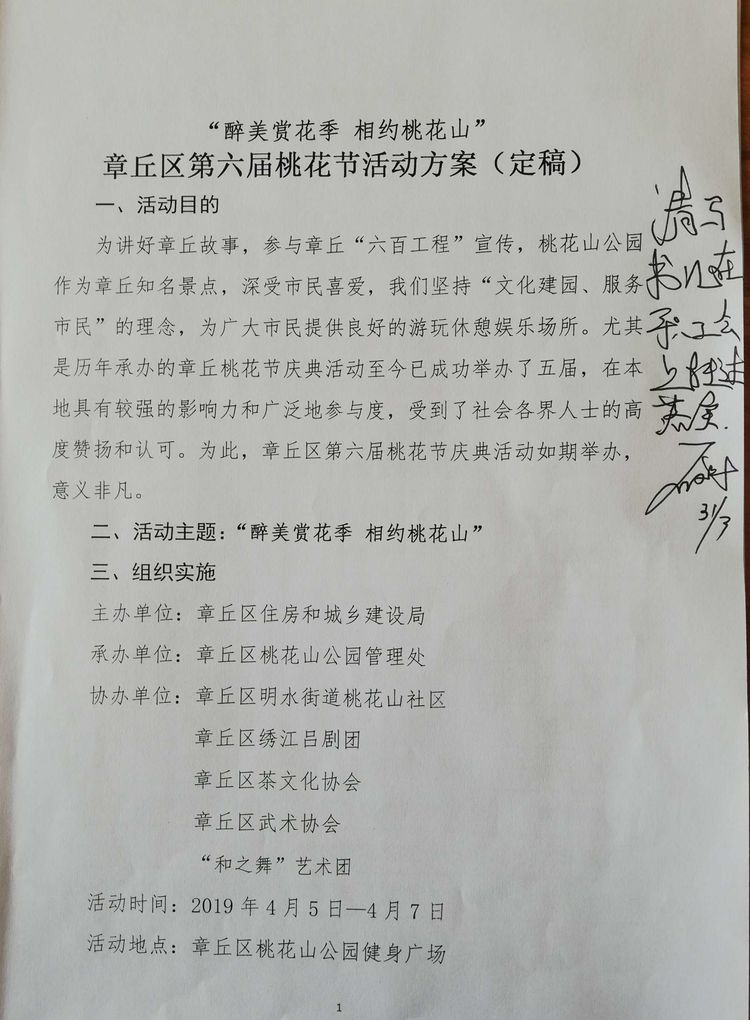 “醉美赏花季 相约桃花山”
章丘区第六届桃花节活动方案（定稿）
一、活动目的
为讲好章丘故事，参与章丘“六百工程”宣传，桃花山公园
作为章丘知名景点，深受市民喜爱，我们坚持“文化建园、服务
市民”的理念，为广大市民提供良好的游玩休憩娱乐场所。尤其
是历年承办的章丘桃花节庆典活动至今已成功举办了五届，在本
地具有较强的影响力和广泛地参与度，受到了社会各界人士的高
度赞扬和认可。为此，章丘区第六届桃花节庆典活动如期举办，
意义非凡。
二、活动主题：“醉美赏花季 相约桃花山”
三、组织实施
主办单位：章丘区住房和城乡建设局
承办单位：章丘区桃花山公园管理处
协办单位：章丘区明水街道桃花山社区
章丘区绣江吕剧团
章丘区茶文化协会
章丘区武术协会
“和之舞”艺术团
活动时间：2019 年 4 月 5 日—4 月 7 日
活动地点：章丘区桃花山公园健身广场
1
请马
书记在
会
上
31/3